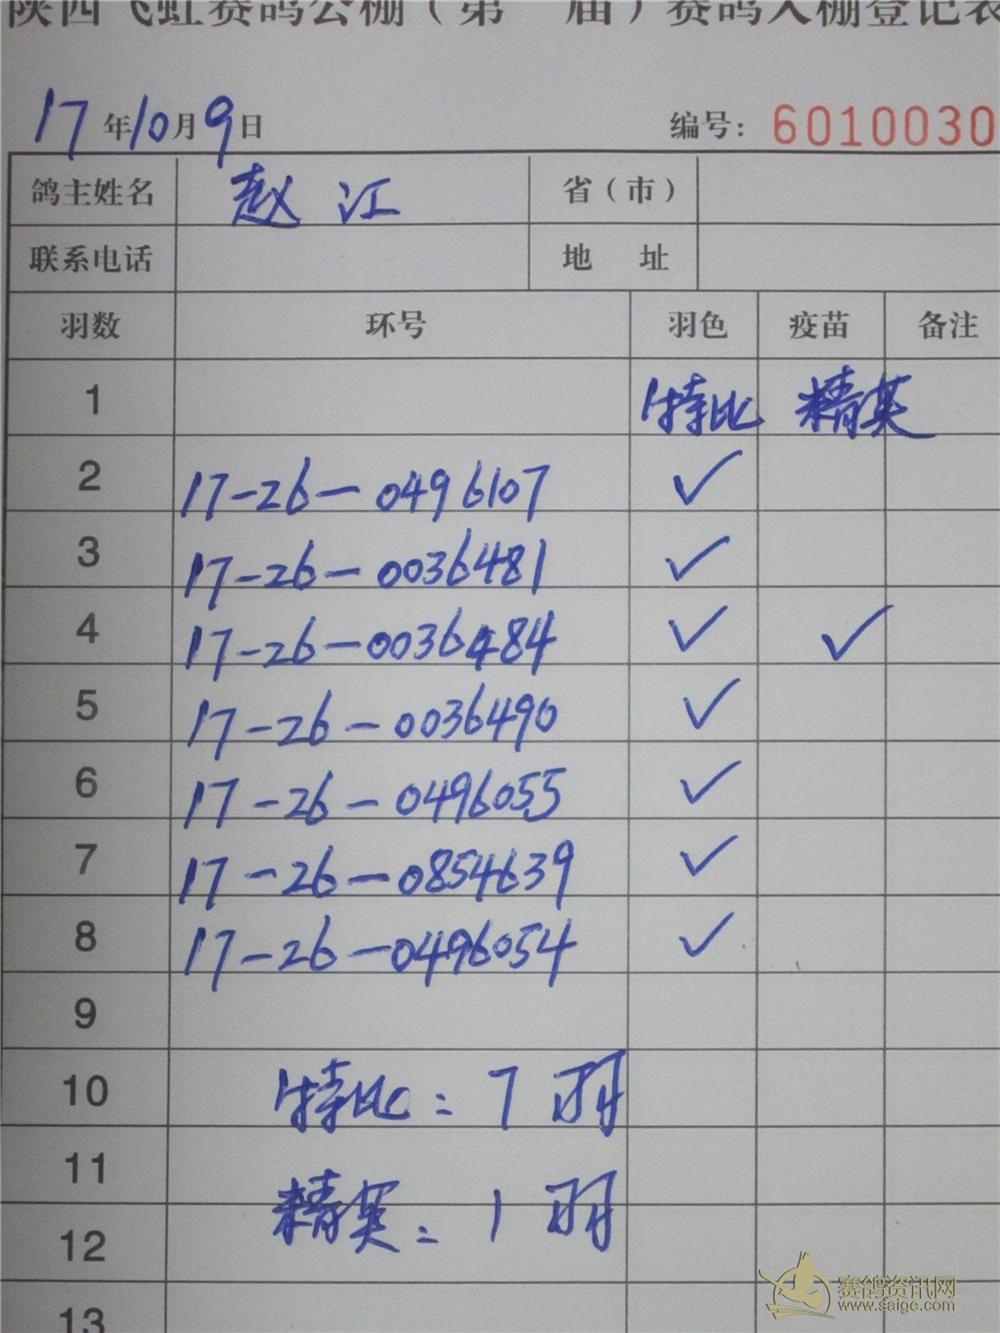 陕西飞虹赛鸽公棚（第 届）赛鸽入棚登记表
17年10月9日 编号：6010030
鸽主姓名 赵江 省（市）
联系电话 地 址
羽数 环号 羽色 疫苗 备注
1 特比 精英
2 17-26-0496107 ✓
3 17-26-0036481 ✓
4 17-26-0036484 ✓ ✓
5 17-26-0036490 ✓
6 17-26-0496055 ✓
7 17-26-0854639 ✓
8 17-26-0496054 ✓
9
10 特比：7羽
11
12 精英：1羽
13
赛鸽资讯网
www.saige.com